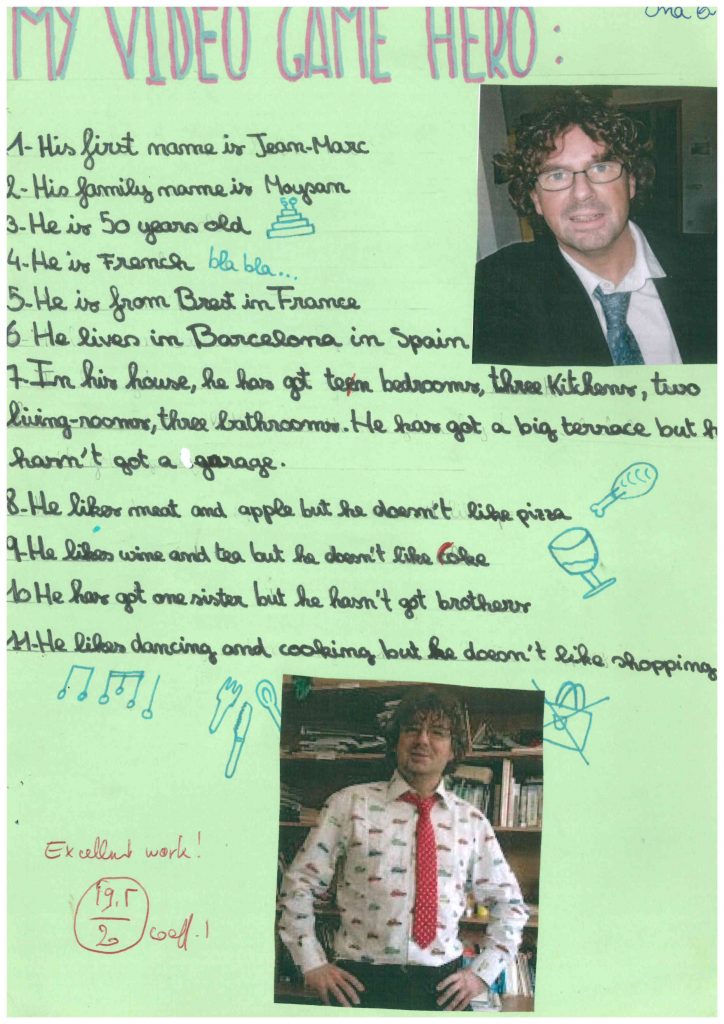 MY VIDEO GAME HERO:
1- His first name is Jean-Marc
2- His family name is Moysan
3- He is 50 years old
50
4- He is French bla bla...
5- He is from Brest in France
6 He lives in Barcelona in Spain
7- In his house, he has got teen bedrooms, three Kitchens, two
living-rooms, three bathrooms. He has got a big terrace but h
hasn't got a garage.
8- He likes meat and apple but he doesn't like pizza
9- He likes wine and tea but he doesn't like Coke
10 He has got one sister but he hasn't got brothers
11- He likes dancing and cooking but he doesn't like shopping
Excellent work!
19,5
20
coeff. 1